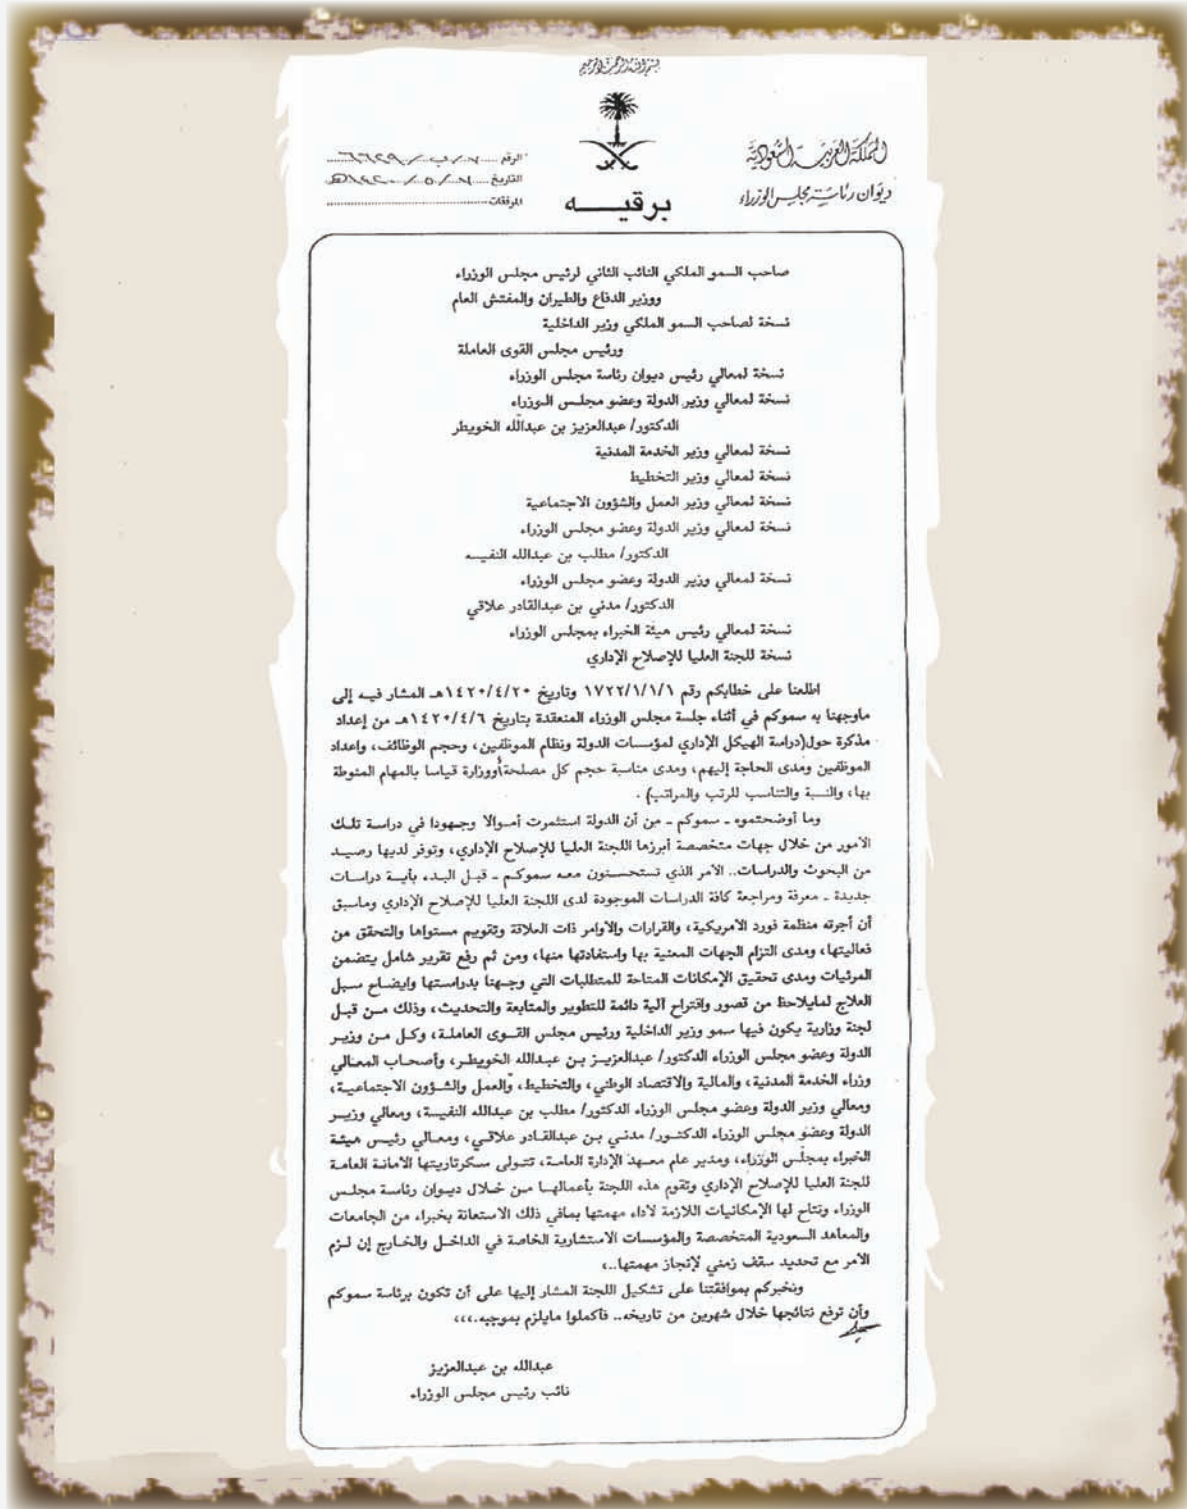 بسم الله الرحمن الرحيم
المملكة العربية السعودية
ديوان رئاسة مجلس الوزراء
برقيه
الرقم ٧/ب/٦٦٢٩
التاريخ ٧/٥/١٤٢٠هـ
المرفقات
صاحب السمو الملكي النائب الثاني لرئيس مجلس الوزراء
ووزير الدفاع والطيران والمفتش العام
نسخة لصاحب السمو الملكي وزير الداخلية
ورئيس مجلس القوى العاملة
نسخة لمعالي رئيس ديوان رئاسة مجلس الوزراء
نسخة لمعالي وزير الدولة وعضو مجلس الوزراء
الدكتور/ عبدالعزيز بن عبدالله الخويطر
نسخة لمعالي وزير الخدمة المدنية
نسخة لمعالي وزير التخطيط
نسخة لمعالي وزير العمل والشؤون الاجتماعية
نسخة لمعالي وزير الدولة وعضو مجلس الوزراء
الدكتور/ مطلب بن عبدالله النفيسه
نسخة لمعالي وزير الدولة وعضو مجلس الوزراء
الدكتور/ مدني بن عبدالقادر علاقي
نسخة لمعالي رئيس هيئة الخبراء بمجلس الوزراء
نسخة للجنة العليا للإصلاح الإداري
اطلعنا على خطابكم رقم ١٧٢٢/١/١/١ وتاريخ ١٤٢٠/٤/٢٠هـ المشار فيه إلى
ماوجهنا به سموكم في أثناء جلسة مجلس الوزراء المنعقدة بتاريخ ١٤٢٠/٤/٦هـ من إعداد
مذكرة حول(دراسة الهيكل الإداري لمؤسسات الدولة ونظام الموظفين، وحجم الوظائف، واعداد
الموظفين ومدى الحاجة إليهم، ومدى مناسبة حجم كل مصلحة أووزارة قياسا بالمهام المنوطة
بها، والنسبة والتناسب للرتب والمراتب) .
وما أوضحتموه ـ سموكم ـ من أن الدولة استثمرت أموالا وجهودا في دراسة تلك
الأمور من خلال جهات متخصصة أبرزها اللجنة العليا للإصلاح الإداري، وتوفر لديها رصيد
من البحوث والدراسات.. الأمر الذي تستحسنون معه سموكم ـ قبل البدء بأية دراسات
جديدة ـ معرفة ومراجعة كافة الدراسات الموجودة لدى اللجنة العليا للإصلاح الإداري وماسبق
أن أجرته منظمة فورد الأمريكية، والقرارات والأوامر ذات العلاقة وتقويم مستواها والتحقق من
فعاليتها، ومدى التزام الجهات المعنية بها واستفادتها منها، ومن ثم رفع تقرير شامل يتضمن
المرئيات ومدى تحقيق الإمكانات المتاحة للمتطلبات التي وجهنا بدراستها وايضاح سبل
العلاج لمايلاحظ من قصور واقتراح آلية دائمة للتطوير والمتابعة والتحديث، وذلك من قبل
لجنة وزارية يكون فيها سمو وزير الداخلية ورئيس مجلس القوى العاملة، وكل من وزير
الدولة وعضو مجلس الوزراء الدكتور/ عبدالعزيز بن عبدالله الخويطر، وأصحاب المعالي
وزراء الخدمة المدنية، والمالية والاقتصاد الوطني، والتخطيط، والعمل والشؤون الاجتماعية،
ومعالي وزير الدولة وعضو مجلس الوزراء الدكتور/ مطلب بن عبدالله النفيسة، ومعالي وزير
الدولة وعضو مجلس الوزراء الدكتور/ مدني بن عبدالقادر علاقي، ومعالي رئيس هيئة
الخبراء بمجلس الوزراء، ومدير عام معهد الإدارة العامة، تتولى سكرتاريتها الأمانة العامة
للجنة العليا للإصلاح الإداري وتقوم هذه اللجنة بأعمالها من خلال ديوان رئاسة مجلس
الوزراء وتتاح لها الإمكانيات اللازمة لأداء مهمتها بمافي ذلك الاستعانة بخبراء من الجامعات
والمعاهد السعودية المتخصصة والمؤسسات الاستشارية الخاصة في الداخل والخارج إن لزم
الأمر مع تحديد سقف زمني لإنجاز مهمتها..،
ونخبركم بموافقتنا على تشكيل اللجنة المشار إليها على أن تكون برئاسة سموكم
وأن ترفع نتائجها خلال شهرين من تاريخه.. فأكملوا مايلزم بموجبه.،،،
عبدالله بن عبدالعزيز
نائب رئيس مجلس الوزراء